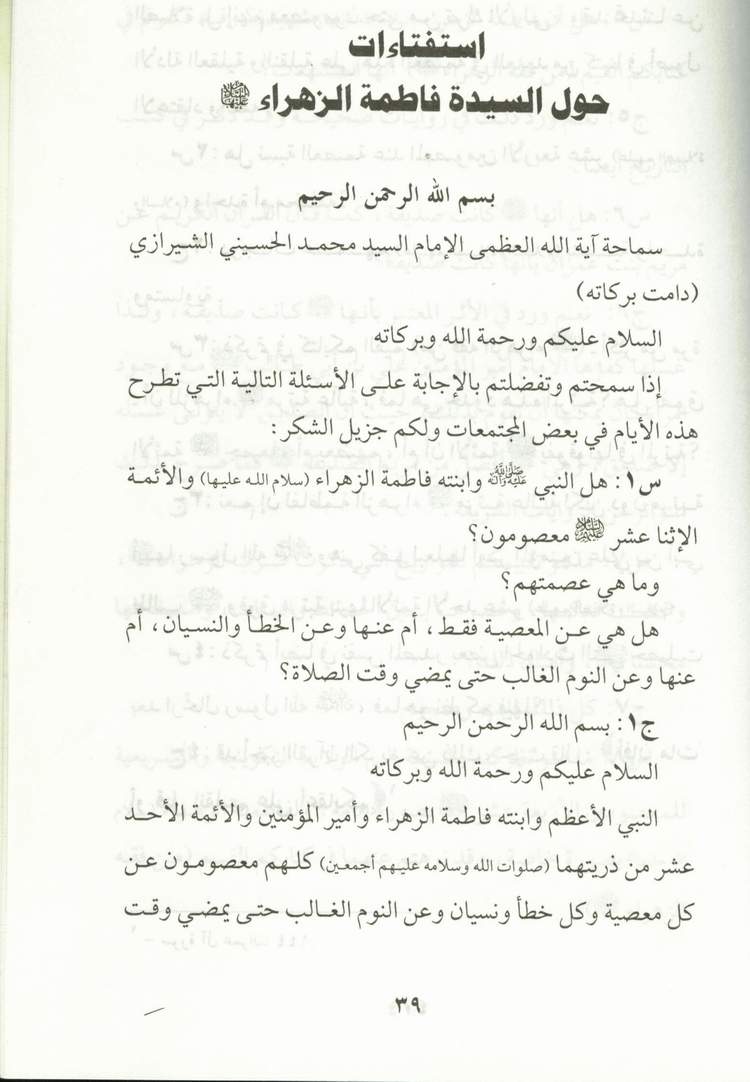 استفتاءات
حول السيدة فاطمة الزهراء عليها السلام
بسم الله الرحمن الرحيم
سماحة آية الله العظمى الإمام السيد محمد الحسيني الشيرازي
(دامت بركاته)
السلام عليكم ورحمة الله وبركاته
إذا سمحتم وتفضلتم بالإجابة على الأسئلة التالية التي تطرح
هذه الأيام في بعض المجتمعات ولكم جزيل الشكر:
س١: هل النبي صلى الله عليه وآله وابنته فاطمة الزهراء (سلام الله عليها) والأئمة
الإثنا عشر عليهم السلام معصومون؟
وما هي عصمتهم؟
هل هي عن المعصية فقط، أم عنها وعن الخطأ والنسيان، أم
عنها وعن النوم الغالب حتى يمضي وقت الصلاة؟
ج١: بسم الله الرحمن الرحيم
السلام عليكم ورحمة الله وبركاته
النبي الأعظم وابنته فاطمة الزهراء وأمير المؤمنين والأئمة الأحد
عشر من ذريتهما (صلوات الله وسلامه عليهم أجمعين) كلهم معصومون عن
كل معصية وكل خطأ ونسيان وعن النوم الغالب حتى يمضي وقت
٣٩